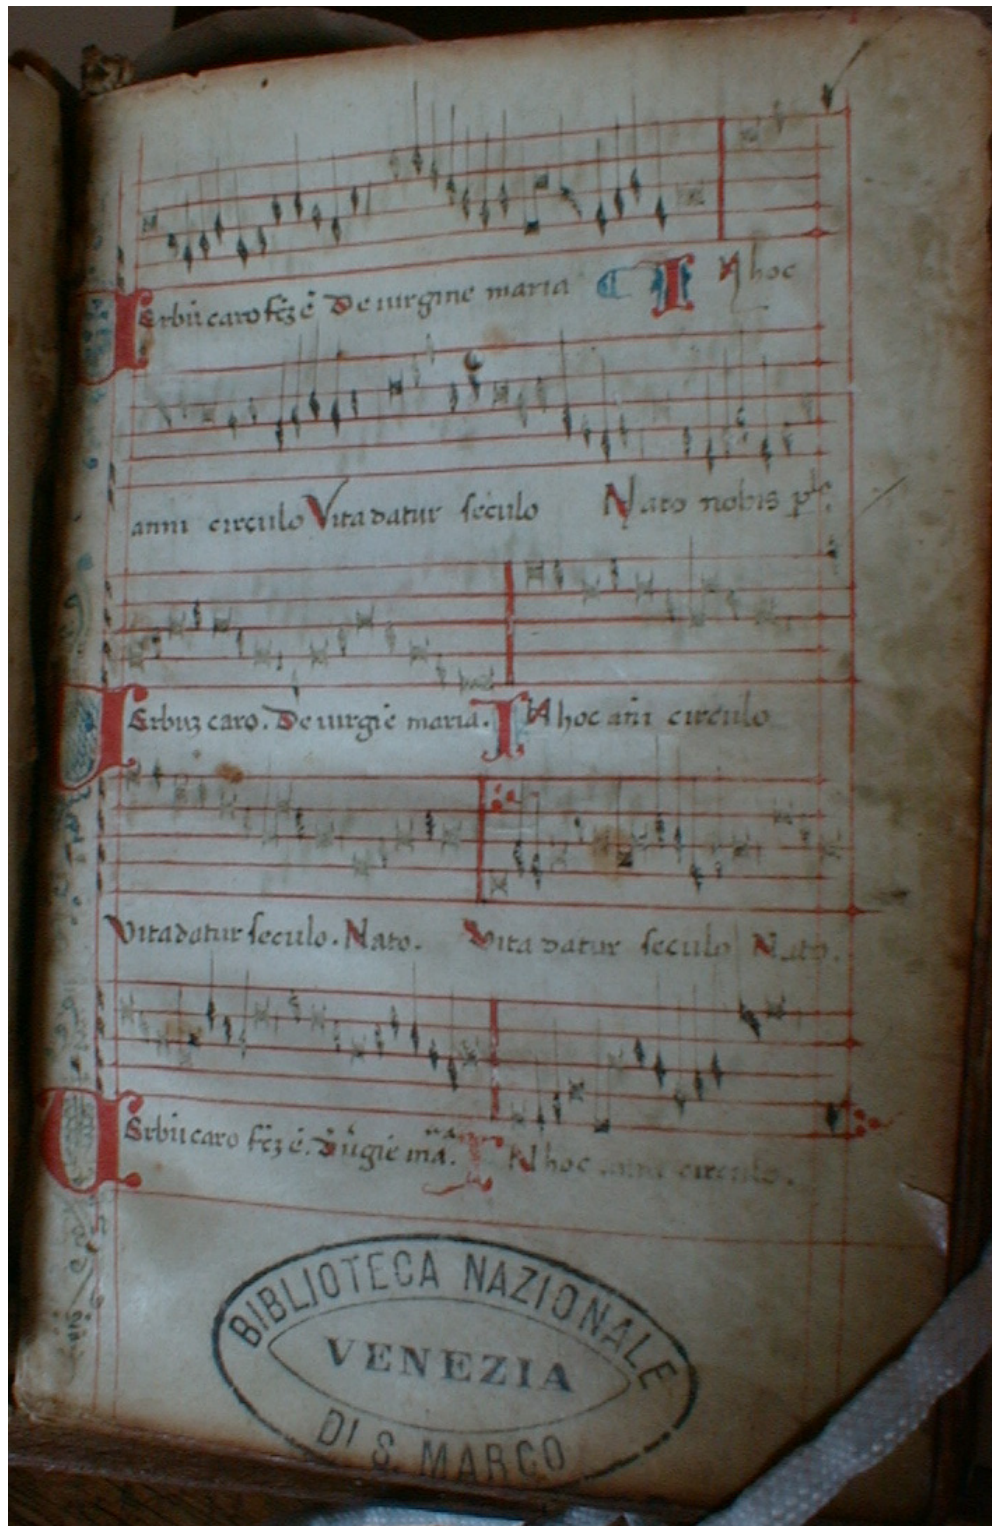 Erbū caro fcz ē De uirgine maria I N hoc
anni circulo Vita datur seculo Nato nobis
Erbuz caro. De uirgiē maria. I N hoc ani circulo
Vita datur seculo. Nato. Vita datur seculo Nato.
Erbū caro fcz ē. I N hoc anni circulo.
BIBLIOTECA NAZIONALE
VENEZIA
DI S. MARCO